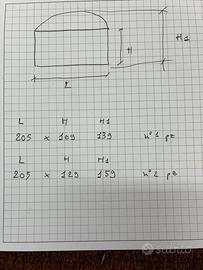 H1
H
L
L H H1
205 x 109 139 n° 1 pz
L H H1
205 x 129 159 n° 2 pz
subito